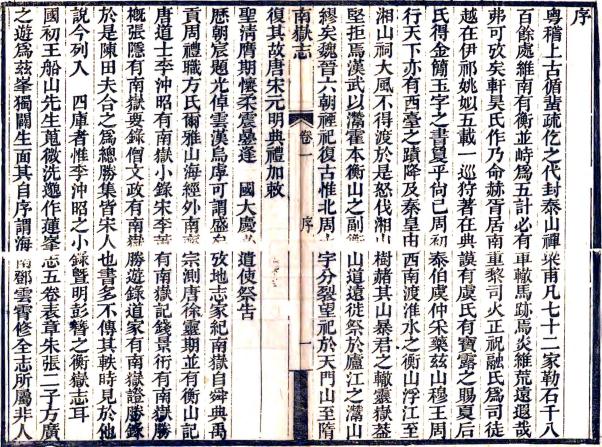 序
粵稽上古循蜚疏仡之代封泰山禪梁甫凡七十二家勒石千八
百餘處維南有衡並峙爲五計必有車轍馬跡焉炎維荒遠遐哉
弗可攷矣軒昊氏作乃命赫胥居南重黎司火正祝融氏爲司徒
越在伊祁姚姒五載一巡狩者在典謨有虞氏有寶露之賜夏后
氏得金簡玉字之書夐乎尙已周初泰伯虞仲采藥茲山穆王周
行天下亦有西臺之蹟降及秦皇由西南渡淮水之衡山浮江至
湘山祠大風不得渡於是怒伐湘山樹赭其山暴君之轍靈嶽葢
堅拒焉漢武以灊霍本衡山之副衡山道遠徙祭於廬江之灊山
繆矣魏晉六朝禋祀復古惟北周宇分裂望祀於天門山至隋
南嶽志 卷一 序 一
復其故唐宋元明典禮加敕
聖清膺期懷柔震疊逢 國大慶必遣使祭告
歷朝宸題光倬雲漢烏虖可謂盛矣攷地志家紀南嶽自舜典禹
貢周禮職方氏爾雅山海經外南齊宗測唐徐靈期並有衡山記
唐道士李沖昭有南嶽小錄宋李薦有南嶽記錢景衎有南嶽勝
概張隱有南嶽要錄僧文政有南嶽勝遊錄道家有南嶽證勝錄
於是陳田夫合之爲總勝集皆宋人也書多不傳其軼時見於他
說今列入 四庫者惟李沖昭之小錄暨明彭簪之衡嶽志耳
國初王船山先生蒐微洗邈作蓮峯志五卷表章朱張二子方廣
之遊爲茲峯獨闢生面其自序謂海南鄧雲霄修全志所屬非人